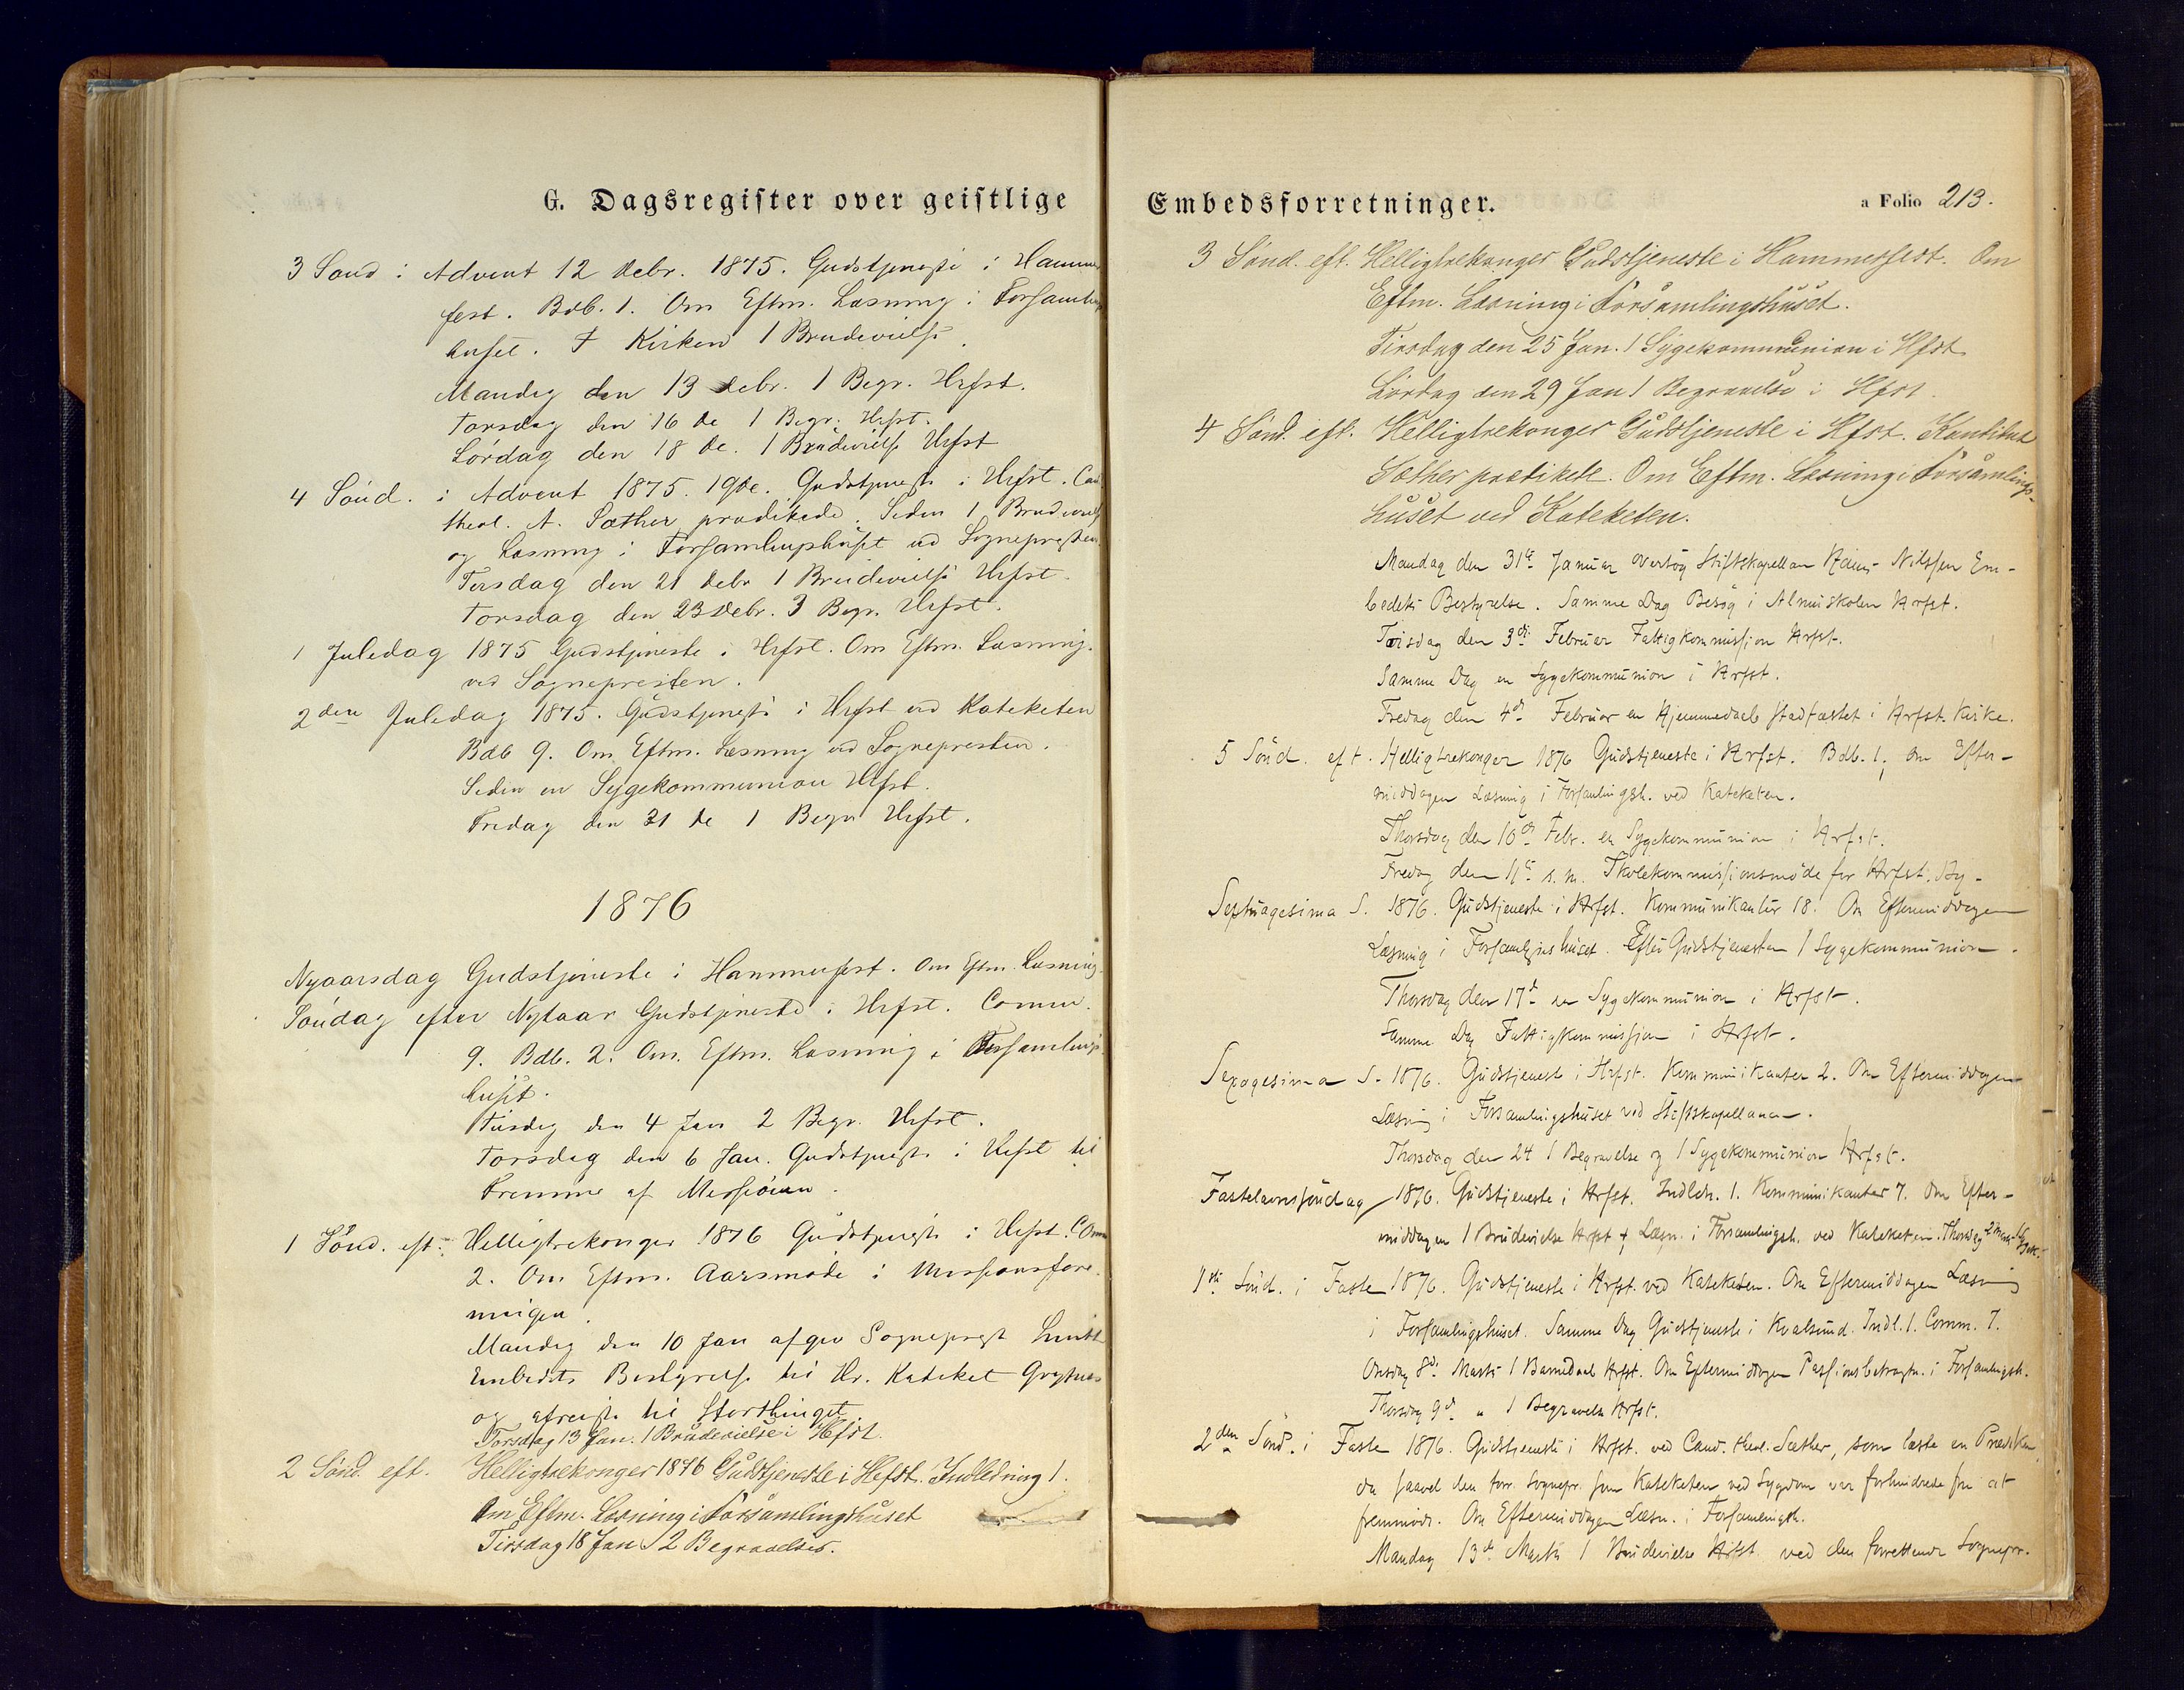 G. Dagsregister over geistlige
3 Sønd i Advent 12 Debr. 1875. Gudstjeneste i Hammer
fest. Bdb. 1. Om Eftm. Læsning i Forsamlings
huset. I Kirken 1 Brudevielse.
Mandag den 13 Debr. 1 Begr. Hrfst.
Torsdag den 16 De 1 Begr. Hrfst.
Lørdag den 18 De. 1 Brudevielse Hrfst
4 Sønd. i Advent 1875. 19 De. Gudstjeneste i Hrfst. Cand
theol. A. Sæther prædikede. Siden 1 Brudevielse
og Læsning i Forsamlingshuset ved Sognepresten.
Tirsdag den 21 Debr 1 Brudevielse Hrfst.
Torsdag den 23 Debr. 3 Begr. Hrfst.
1 Juledag 1875 Gudstjeneste i Hrfst. Om Eftm. Læsning
ved Sognepresten.
2den Juledag 1875. Gudstjeneste i Hrfst ved Kateketen
Bdb 9. Om Eftm. Læsning ved Sognepresten.
Siden en Sygekommunion Hrfst.
Fredag den 31 De 1 Begr Hrfst.
1876
Nyaarsdag Gudstjeneste i Hammerfest. Om Eftm. Læsning
Søndag efter Nytaar Gudstjeneste i Hrfst. Comm.
9. Bdb. 2. Om. Eftm. Læsning i Forsamlings
huset.
Tirsdag den 4 Jan 2 Begr. Hrfst.
Torsdag den 6 Jan. Gudstjeneste i Hrfst til
Fremme af Missionen.
1 Sønd. eft. Helligtrekonger 1876 Gudstjeneste i Hrfst. Comm
2. Om Eftm. Aarsmøde i Missionsfore
ningen.
Mandag den 10 Jan afgav Sogneprest
Embedets Bestyrelse til Hr. Kateket
og afreiste til Storthinget
Torsdag 13 Jan. 1 Brudevielse i Hfst.
2 Sønd. eft. Helligtrekonger 1876 Gudstjeneste i Hfst. Indledning 1.
Om Eftm. Læsning i Forsamlingshuset
Tirsdag 18 Jan 2 Begravelser.
Embedsforretninger.
a Folio 213.
3 Sønd. eft. Helligtrekonger Gudstjeneste i Hammerfest. Om
Eftm. Læsning i Forsamlingshuset.
Tirsdag den 25 Jan. 1 Sygekommunion i Hfst
Lørdag den 29 Jan 1 Begravelse i Hfst.
4 Sønd. eft. Helligtrekonger Gudstjeneste i Hfst. Kandidat
Sæther prædikede. Om Eftm. Læsning i Forsamlings-
huset ved Kateketen.
Mandag den 31te Januar overtog Stiftskapellan Nilssen Em-
bedets Bestyrelse. Samme Dag Besøg i Almuskolen Hrfst.
Torsdag den 3die Februar Fattigkommission Hrfst.
Samme Dag en Sygekommunion i Hrfst.
Fredag den 4de Februar en Hjemmedaab stadfæstet i Hrfst. Kirke.
5 Sønd. eft. Helligtrekonger 1876 Gudstjeneste i Hrfst. Bdb. 1, om Efter-
middagen Læsning i Forsamlingsh. ved Kateketen.
Thorsdag den 10de Febr. en Sygekommunion i Hrfst.
Fredag den 11te s. m. Skolekommissionsmøde for Hrfst. By-
Septuagesima S. 1876. Gudstjeneste i Hrfst. Kommunikanter 18. Om Eftermiddagen
Læsning i Forsamlingshuset. Efter Gudstjenesten 1 Sygekommunion.
Thorsdag den 17de en Sygekommunion i Hrfst.
Samme Dag Fattigkommission i Hrfst.
Sexagesima S. 1876. Gudstjeneste i Hrfst. Kommunikanter 2. Om Eftermiddagen
Læsning i Forsamlingshuset ved Stiftskapellanen.
Thorsdag den 24 1 Begravelse og 1 Sygekommunion Hrfst.
Fastelavnssøndag 1876. Gudstjeneste i Hrfst. Indledn. 1. Kommunikanter 7. Om Efter-
middagen 1 Brudevielse Hrfst & Læsn. i Forsamlingsh. ved Kateketen. Thorsdag 2 Marts 1 Sygek.
1ste Sønd. i Faste 1876. Gudstjeneste i Hrfst. ved Kateketen. Om Eftermiddagen Læsning
i Forsamlingshuset. Samme Dag Gudstjeneste i Kvalsund. Indl. 1. Comm. 7.
Onsdag 8de Marts 1 Barnedaab Hrfst. Om Eftermiddagen Passionsbetragtn. i Forsamlingsh.
Thorsdag 9de " 1 Begravelse Hrfst.
2den Sønd. i Faste 1876. Gudstjeneste i Hrfst. ved Cand. theol. Sæther, som læste en Prædiken,
da saavel den forr. Sognepr. som Kateketen ved Sygdom var forhindrede fra at
fremmøde. Om Eftermiddagen Læsn. i Forsamlingsh.
Mandag 13de Marts 1 Brudevielse Hrfst. ved den forrettende Sognepr.